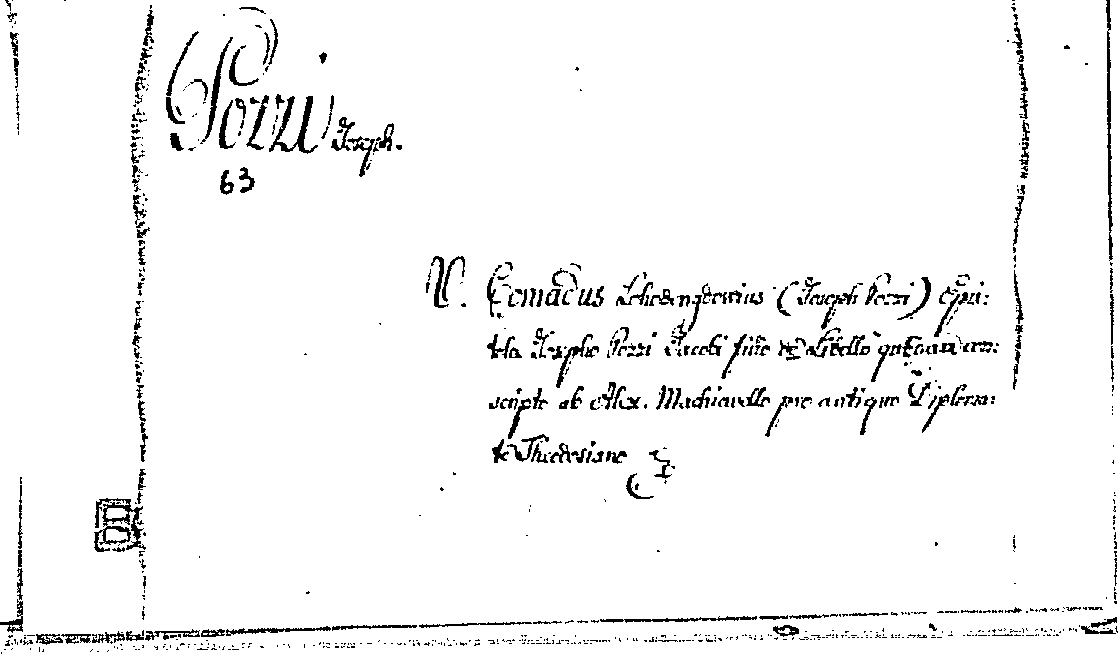 Pozzi Joseph.
63
V. Comadus (Joseph Pozzi) Epis:
tola Josepho Pozzi Jacobi filio de Libello
scripto ab Alex. Machiavello pro antiquo Diploma:
te Theodosiano